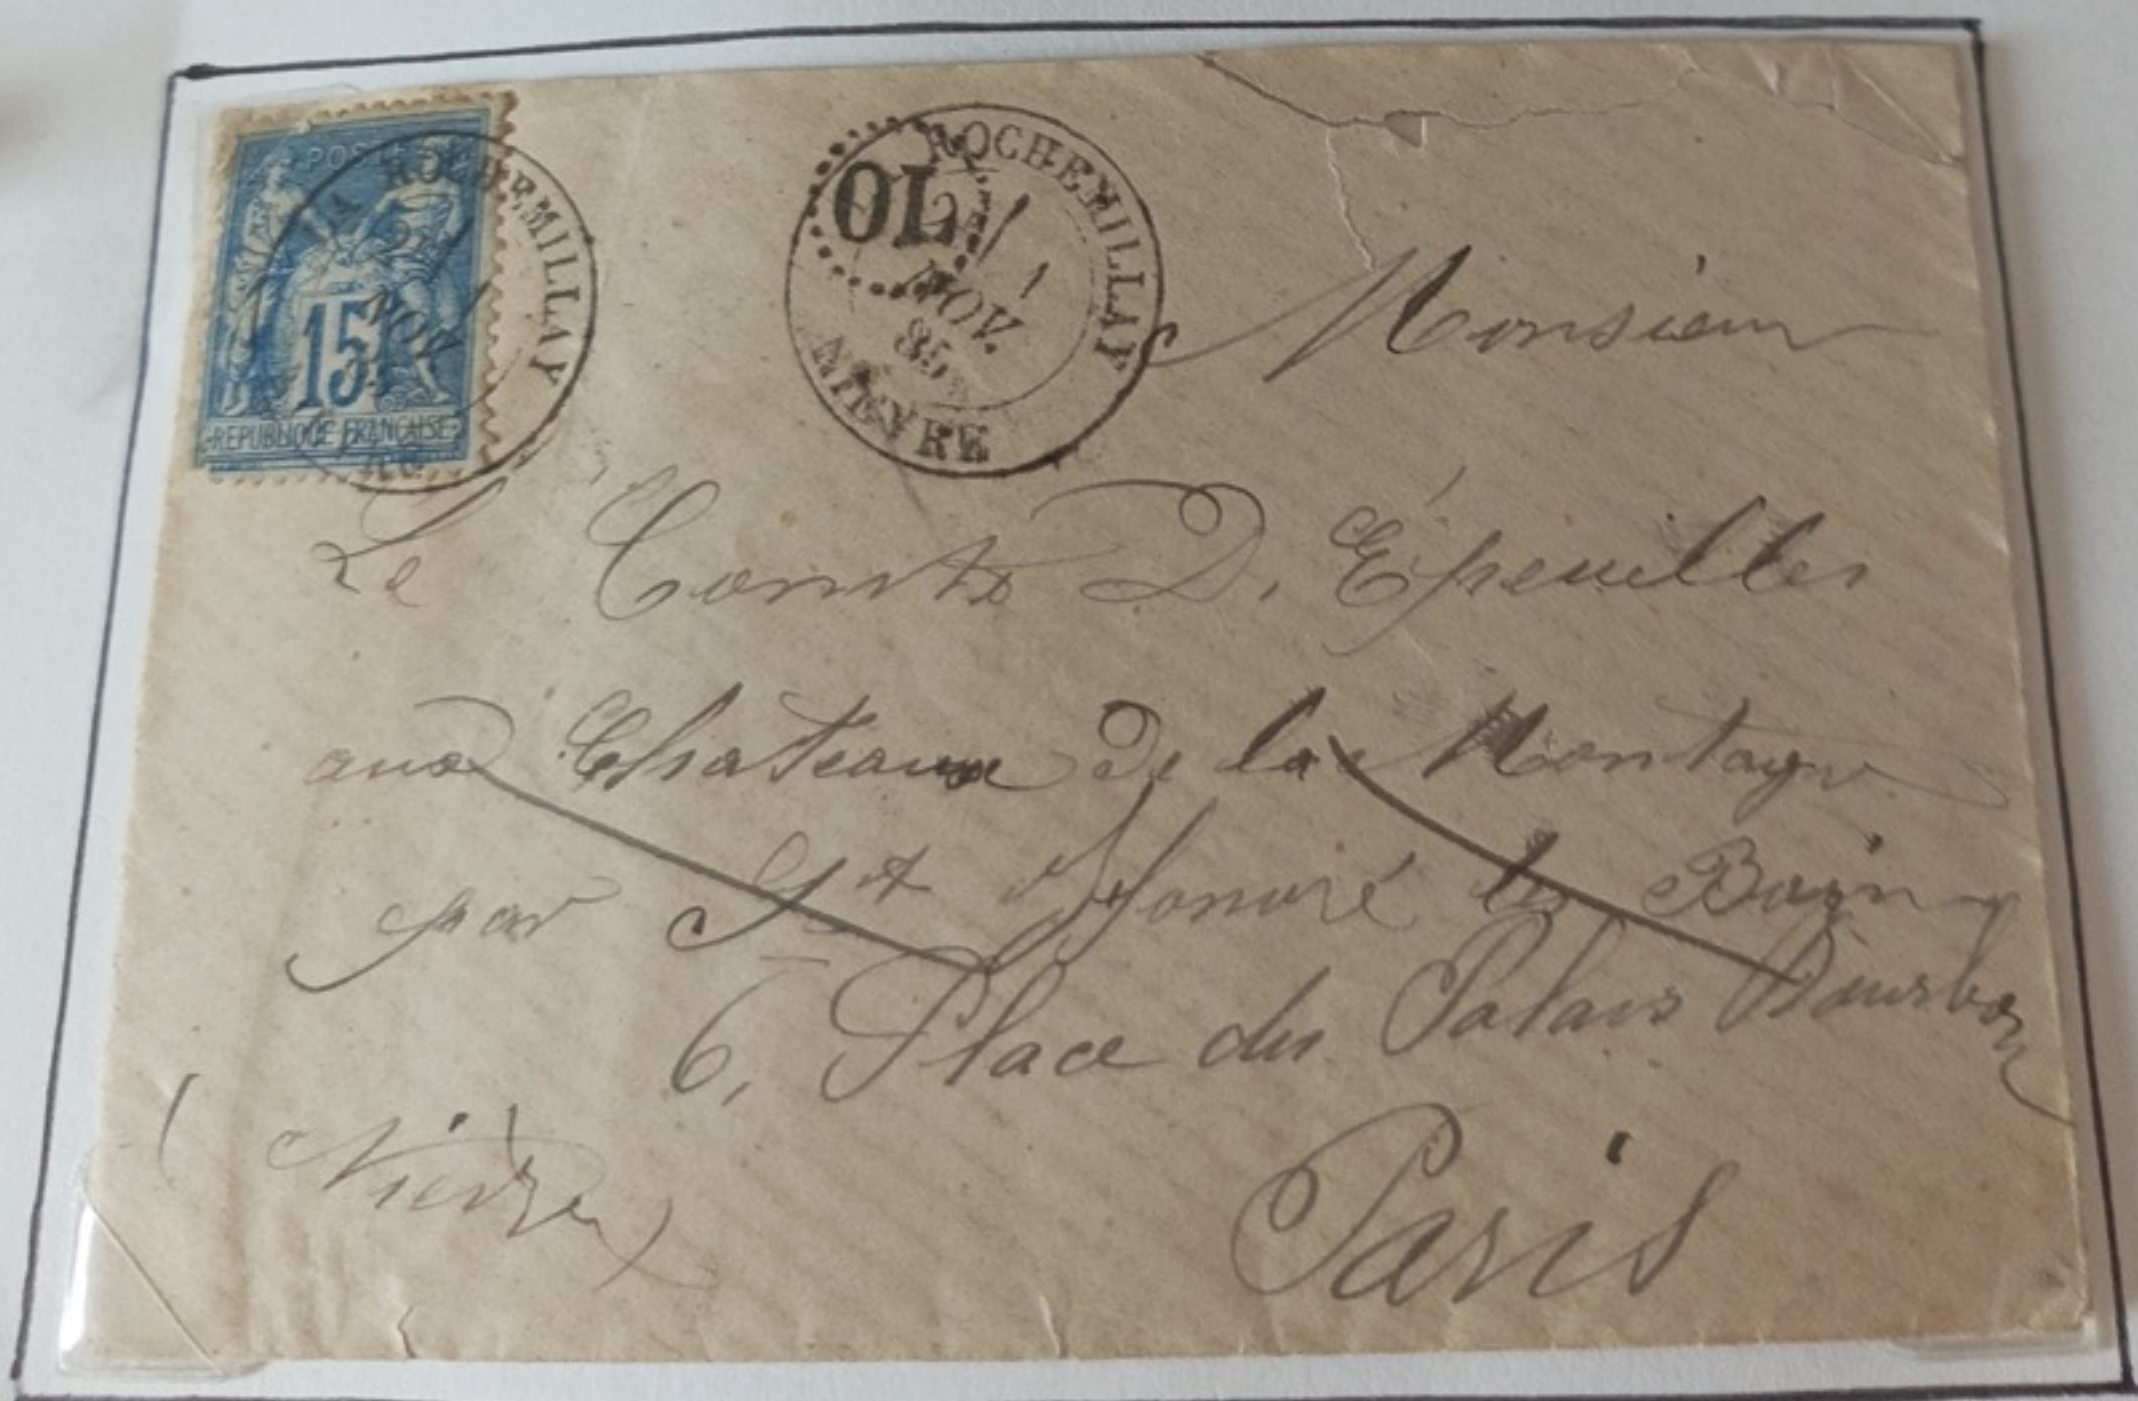 POSTES
15
REPUBLIQUE FRANÇAISE
LA ROCHEMILLAY
NOV
OL
ROCHEMILLAY
1
NOV.
85
NIEVRE
Monsieur
Le Comte D. Épeuilles
aux Chateaux de la Montagne
par St Honoré les Bains
6, Place du Palais Bourbon
(Nièvre)
Paris